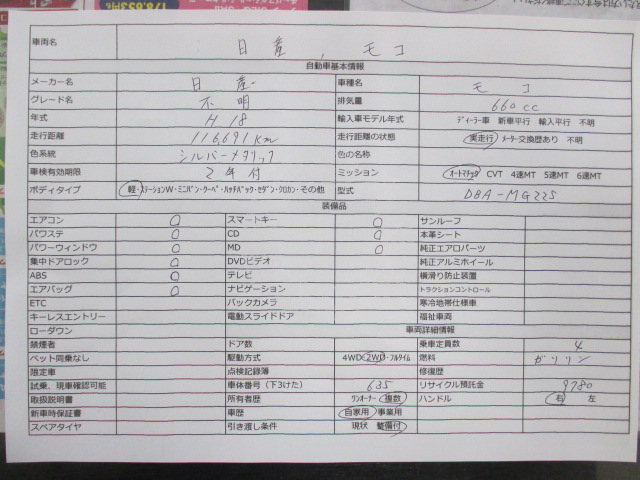 178,633円
車両名 日産 , モコ
自動車基本情報
メーカー名 日産 車種名 モコ
グレード名 不明 排気量 660cc
年式 H18 輸入車モデル年式 ディーラー車 新車平行 輸入平行 不明
走行距離 116,691km 走行距離の状態 実走行 メーター交換歴あり 不明
色系統 シルバーメタリック 色の名称
車検有効期限 2年付 ミッション オートマチック CVT 4速MT 5速MT 6速MT
ボディタイプ 軽・ステーションW・ミニバン・クーペ・ハッチバック・セダン・クロカン・その他 型式 DBA-MG22S
装備品
エアコン ○ スマートキー ○ サンルーフ
パワステ ○ CD ○ 本革シート
パワーウィンドウ ○ MD ○ 純正エアロパーツ
集中ドアロック ○ DVDビデオ 純正アルミホイール
ABS ○ テレビ 横滑り防止装置
エアバッグ ○ ナビゲーション トラクションコントロール
ETC バックカメラ 寒冷地帯仕様車
キーレスエントリー 電動スライドドア 福祉車両
ローダウン 車両詳細情報
禁煙者 ドア数 乗車定員数 4
ペット同乗なし 駆動方式 4WD・2WD・フルタイム 燃料 ガソリン
限定車 点検記録簿 修復歴
試乗、現車確認可能 車体番号（下3けた） 635 リサイクル預託金 9780
取扱説明書 所有者歴 ワンオーナー 複数 ハンドル 右 左
新車時保証書 車歴 自家用 事業用
スペアタイヤ 引き渡し条件 現状 整備付